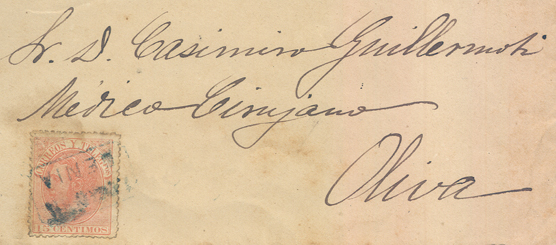 Sr. D. Casimiro Guillermoti
Médico Cirujano
Oliva
CORREOS Y TELEGFOS
15 CENTIMOS